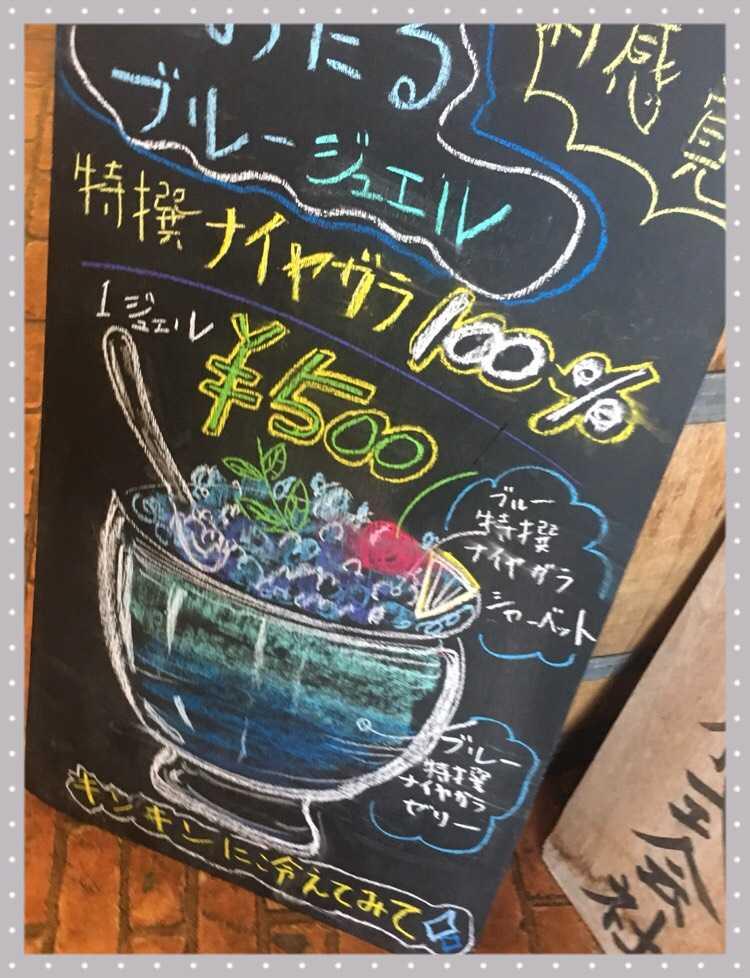 おたる
ブルージュエル
特撰ナイヤガラ100%
1ジュエル
¥500
ブルー
特撰
ナイヤガラ
シャーベット
ブルー
特撰
ナイヤガラ
ゼリー
キンキンに冷えてみて